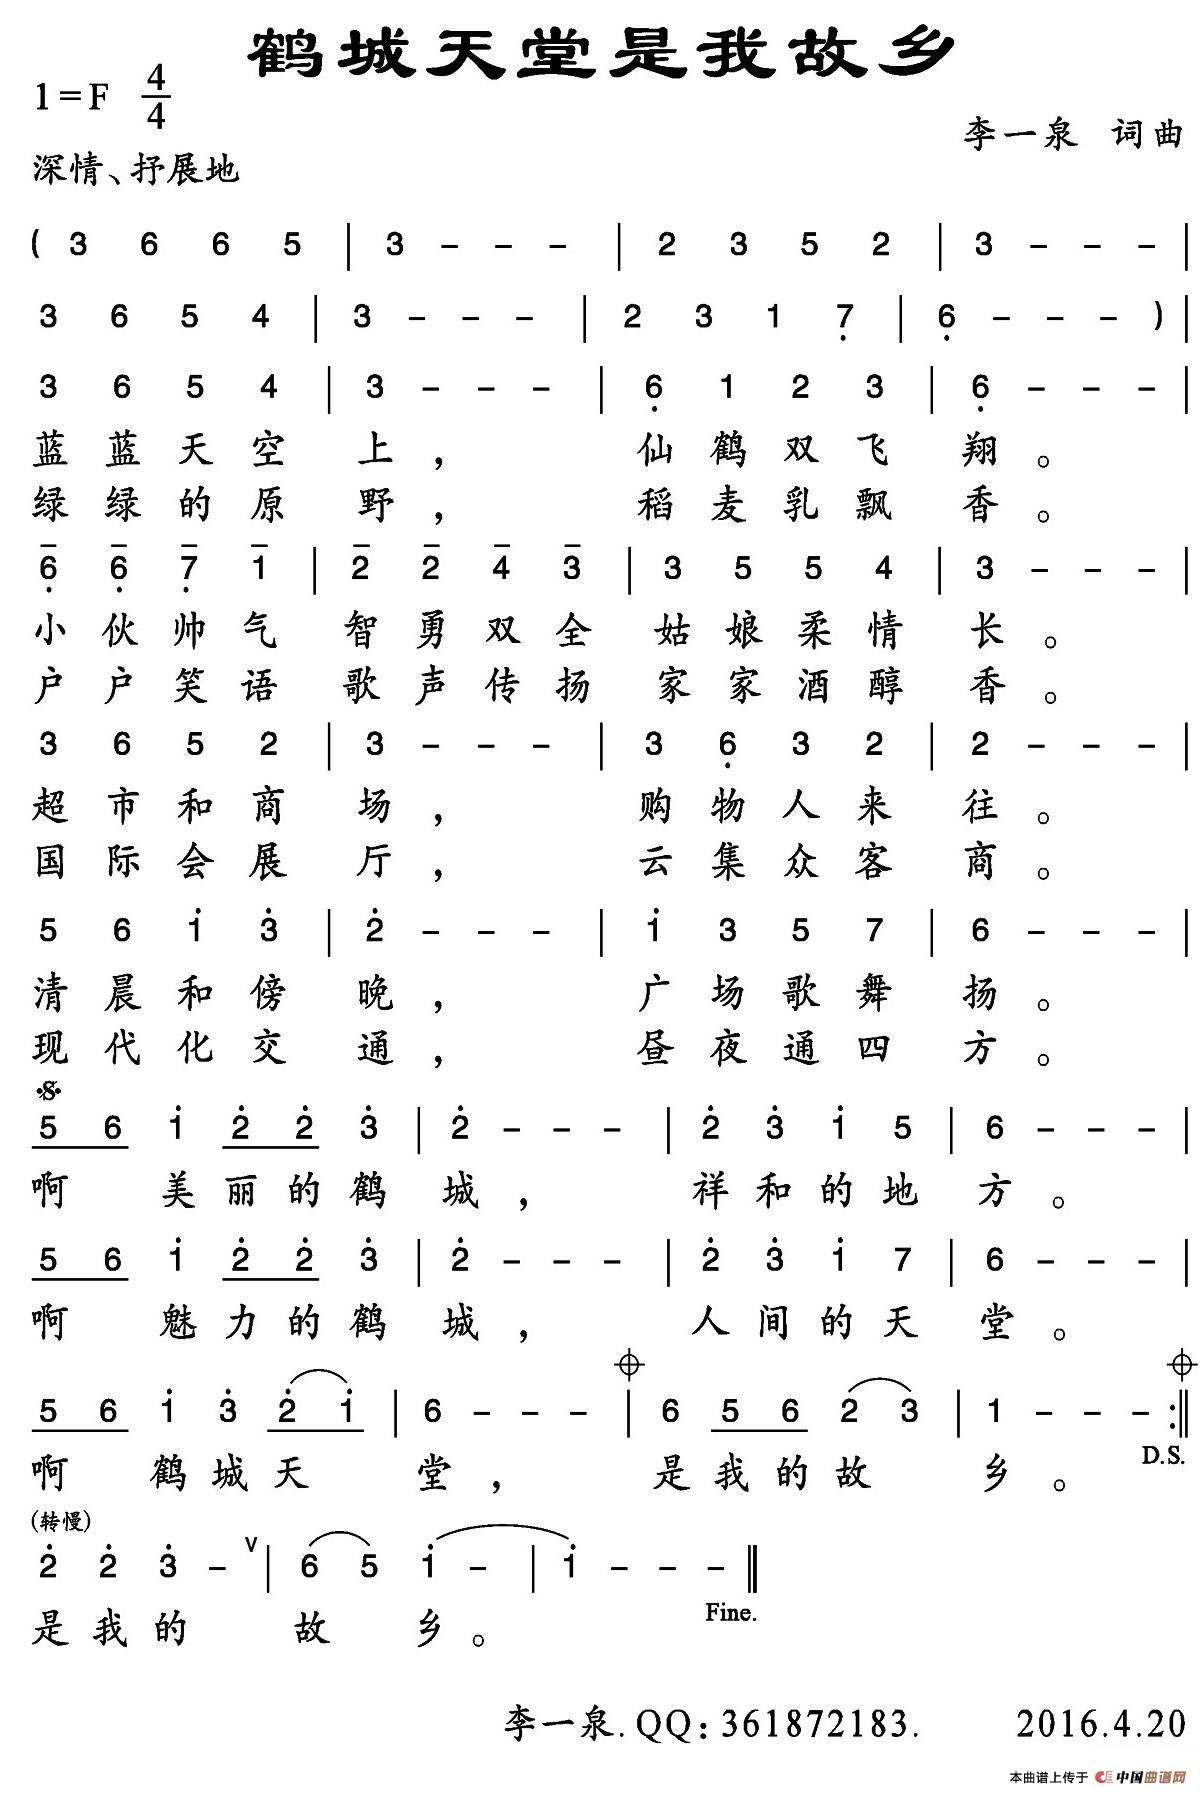 鹤城天堂是我故乡
1=F 4/4
李一泉 词曲
深情、抒展地
( 3 6 6 5 | 3 - - - | 2 3 5 2 | 3 - - - |
3 6 5 4 | 3 - - - | 2 3 1 7̣ | 6̣ - - - ) |
3 6 5 4 | 3 - - - | 6̣ 1 2 3 | 6̣ - - - |
蓝蓝天空上， 仙鹤双飞翔。
绿绿的原野， 稻麦乳飘香。
6̣̄ 6̣̄ 7̣̄ 1̄ | 2̄ 2̄ 4̄ 3̄ | 3 5 5 4 | 3 - - - |
小伙帅气 智勇双全 姑娘柔情长。
户户笑语 歌声传扬 家家酒醇香。
3 6 5 2 | 3 - - - | 3 6̣ 3 2 | 2 - - - |
超市和商场， 购物人来往。
国际会展厅， 云集众客商。
5 6 1̇ 3̇ | 2̇ - - - | 1̇ 3 5 7 | 6 - - - |
清晨和傍晚， 广场歌舞扬。
现代化交通， 昼夜通四方。
𝄋
5 6 1̇ 2̇ 2̇ 3̇ | 2̇ - - - | 2̇ 3̇ 1̇ 5 | 6 - - - |
啊 美丽的鹤城， 祥和的地方。
5 6 1̇ 2̇ 2̇ 3̇ | 2̇ - - - | 2̇ 3̇ 1̇ 7 | 6 - - - |
啊 魅力的鹤城， 人间的天堂。
𝄌 𝄌
5 6 1̇ 3̇ 2̇ 1̇ | 6 - - - | 6 5 6 2 3 | 1 - - - :‖
D.S.
啊 鹤城天堂， 是我的故乡。
(转慢)
2̇ 2̇ 3̇ - V | 6 5 1̇ - | 1̇ - - - ‖
Fine.
是我的 故乡。
李一泉.QQ:361872183. 2016.4.20
本曲谱上传于 中国曲谱网